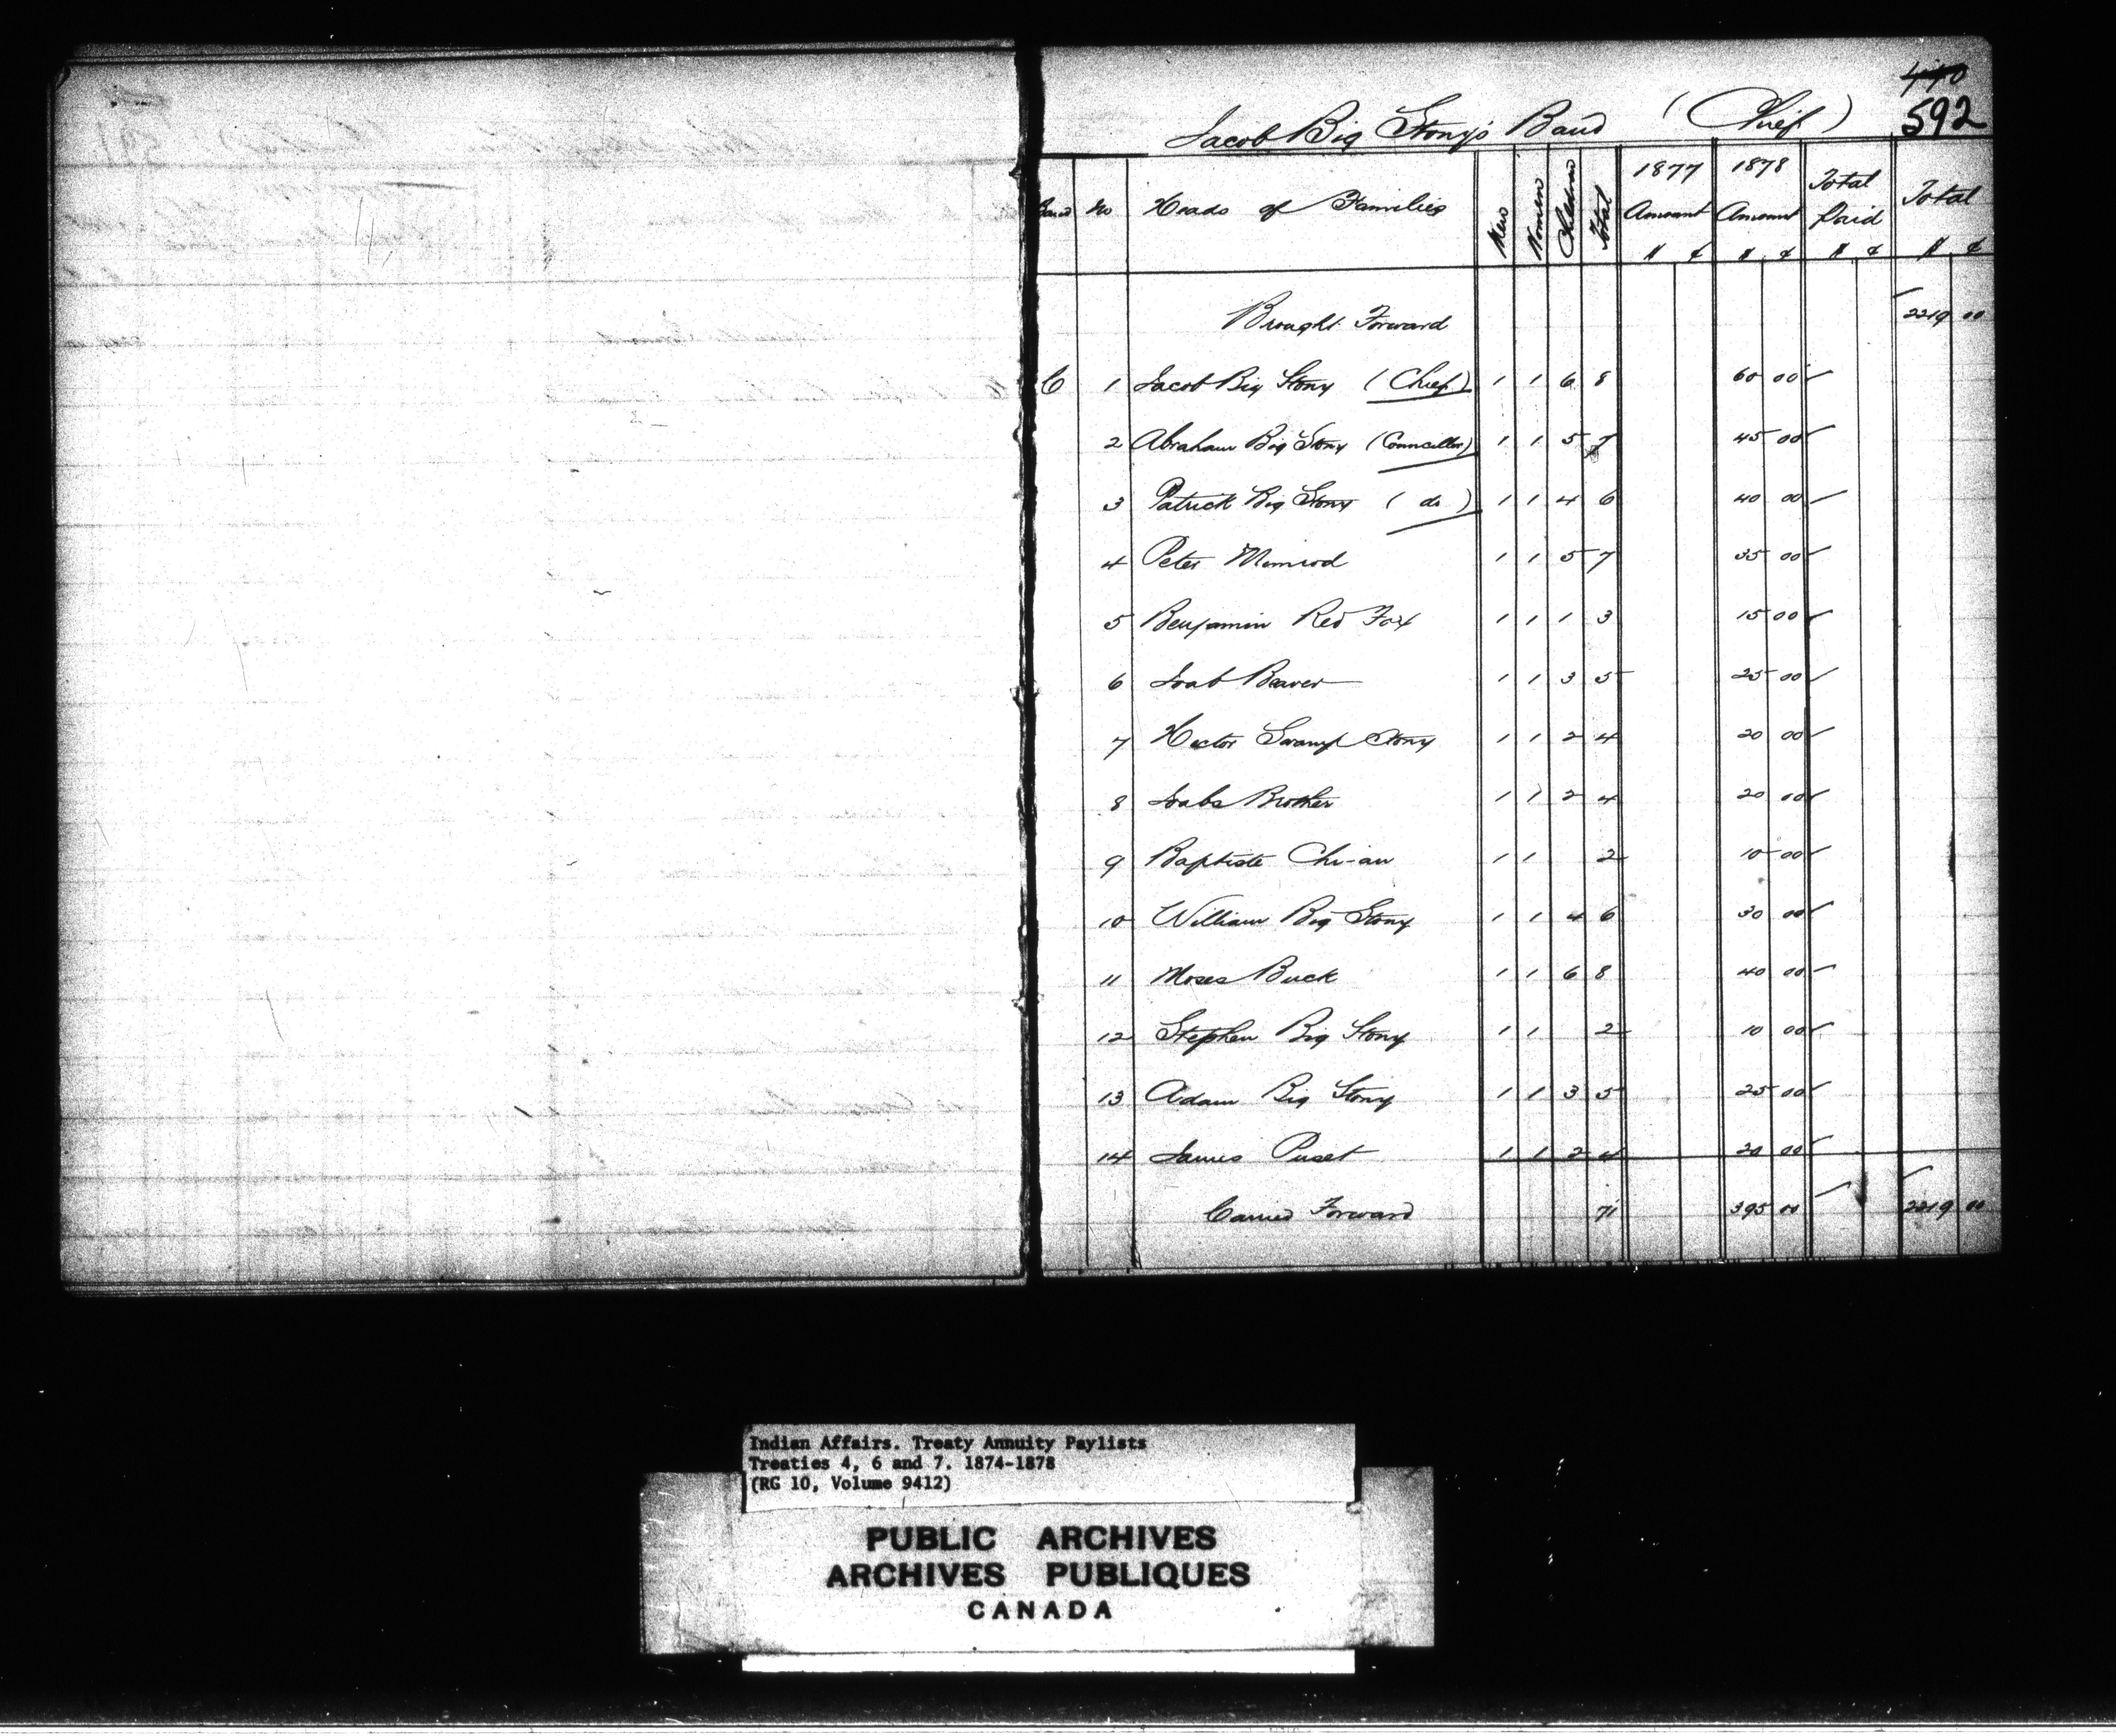 440
592
Jacob Big Stony's Band (Chief)
Band No Heads of Families Men Women Children Total 1877 Amount $ ¢ 1878 Amount $ ¢ Total Paid $ ¢ Total $ ¢
Brought Forward 2219 00
C 1 Jacob Big Stony (Chief) 1 1 6 8 60 00
2 Abraham Big Stony (Councillor) 1 1 5 7 45 00
3 Patrick Big Stony (do) 1 1 4 6 40 00
4 Peter 1 1 5 7 35 00
5 Benjamin Red Fox 1 1 1 3 15 00
6 Joab Beaver 1 1 3 5 25 00
7 Hector Swamp Stony 1 1 2 4 20 00
8 Joabs Brother 1 1 2 4 20 00
9 Baptiste 1 1 2 10 00
10 William Big Stony 1 1 4 6 30 00
11 Moses Buck 1 1 6 8 40 00
12 Stephen Big Stony 1 1 2 10 00
13 Adam Big Stony 1 1 3 5 25 00
14 James 1 1 2 4 20 00
Carried Forward 71 395 00 2219 00
Indian Affairs. Treaty Annuity Paylists
Treaties 4, 6 and 7. 1874-1878
(RG 10, Volume 9412)
PUBLIC ARCHIVES
ARCHIVES PUBLIQUES
CANADA